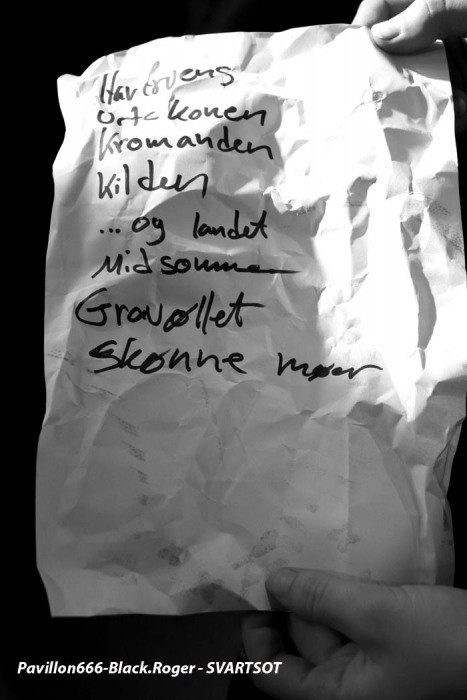 Havfruens
Urtekonen
Kromanden
Kilden
... og landet
Midsommer
Gravøllet
Skønne møer
Pavillon666-Black.Roger - SVARTSOT